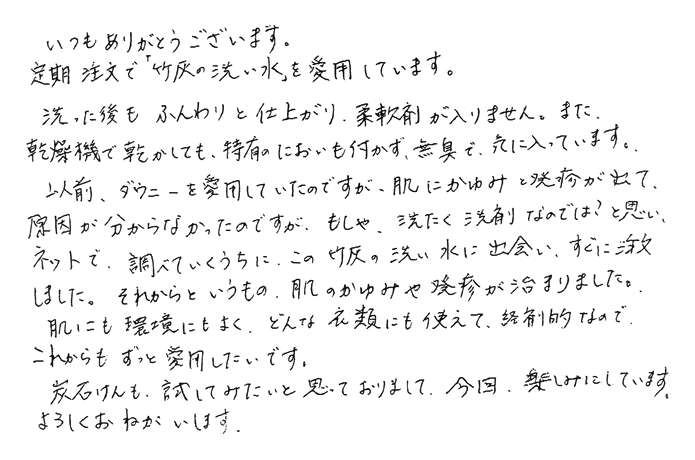 いつもありがとうございます。
定期注文で「竹灰の洗い水」を愛用しています。
洗った後もふんわりと仕上がり、柔軟剤が入りません。また、
乾燥機で乾かしても、特有のにおいも付かず、無臭で、気に入っています。
以前、ダウニーを愛用していたのですが、肌にかゆみと発疹が出て、
原因が分からなかったのですが、もしや、洗たく洗剤なのでは?と思い、
ネットで、調べていくうちに、この竹灰の洗い水に出会い、すぐに
しました。それからというもの、肌のかゆみや発疹が治まりました。
肌にも環境にもよく、どんな衣類にも使えて、経剤的なので、
これからもずっと愛用したいです。
炭石けんも、試してみたいと思っておりまして、今回、楽しみにしています。
よろしくおねがいします。